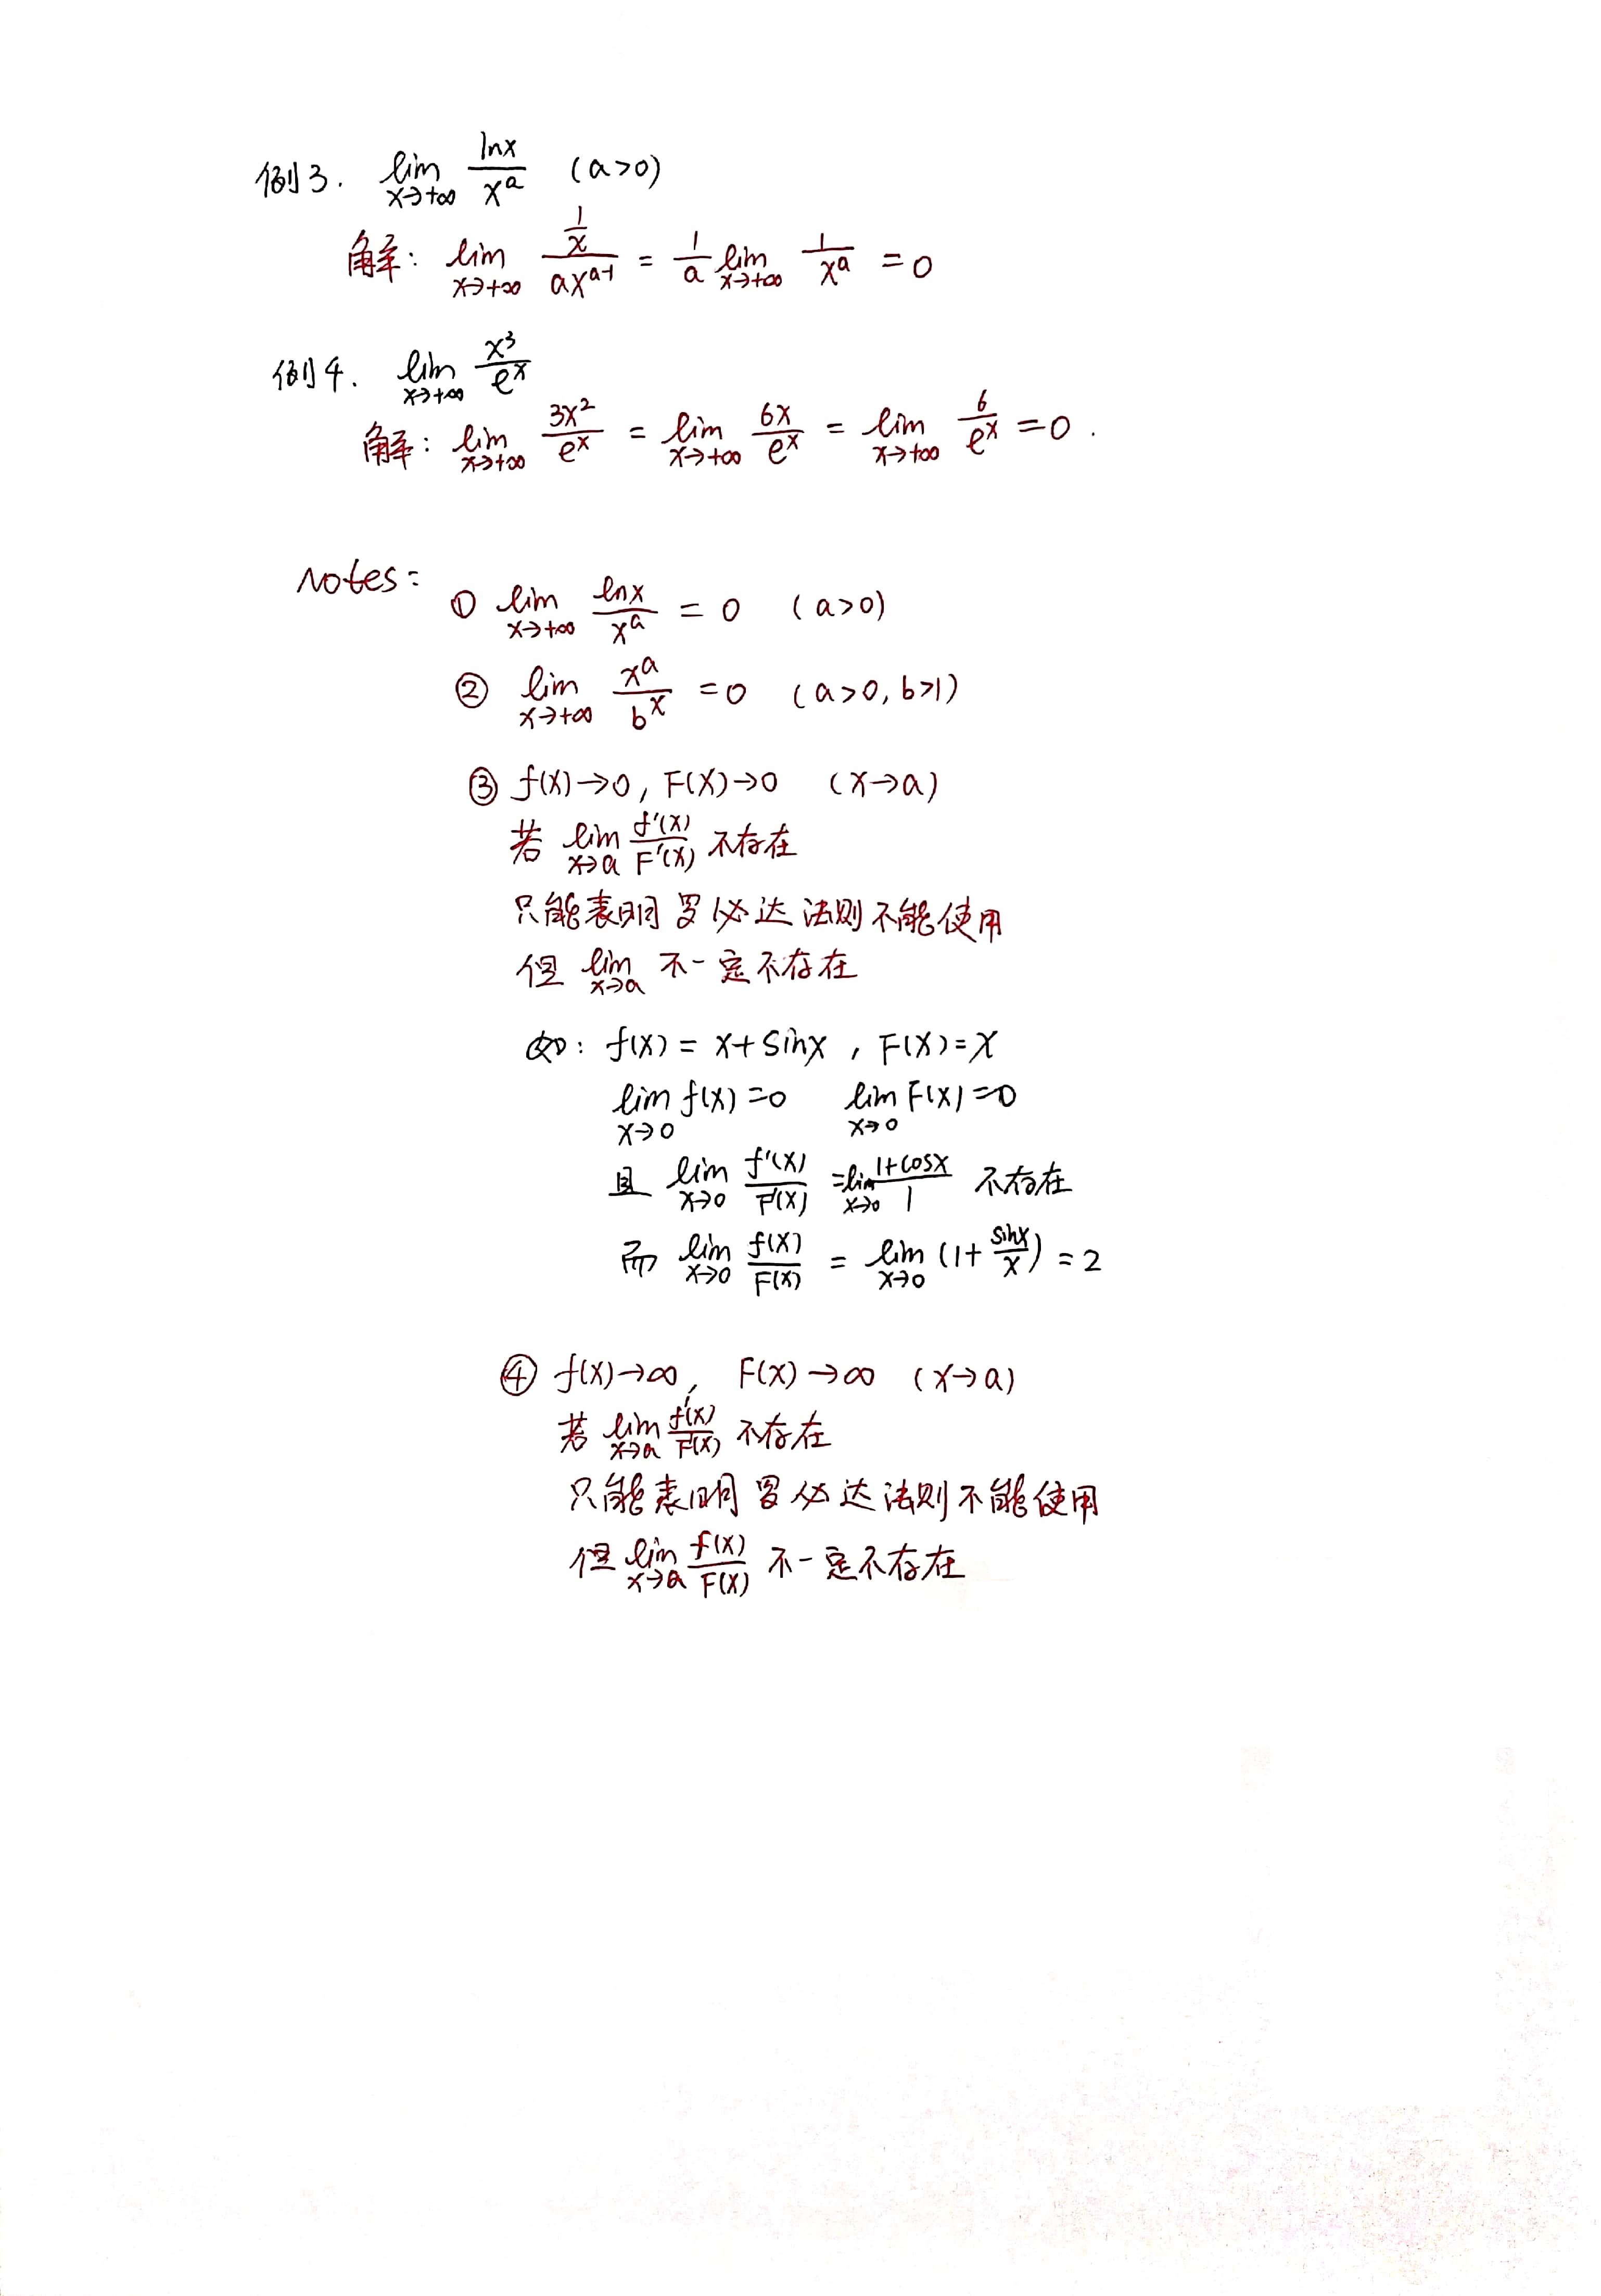 例3. lim_{x→+∞} lnx/x^a (a>0)
解: lim_{x→+∞} (1/x)/(ax^{a-1}) = 1/a lim_{x→+∞} 1/x^a = 0
例4. lim_{x→+∞} x^3/e^x
解: lim_{x→+∞} 3x^2/e^x = lim_{x→+∞} 6x/e^x = lim_{x→+∞} 6/e^x = 0.
Notes:
① lim_{x→+∞} lnx/x^a = 0 (a>0)
② lim_{x→+∞} x^a/b^x = 0 (a>0, b>1)
③ f(x)→0, F(x)→0 (x→a)
若 lim_{x→a} f'(x)/F'(x) 不存在
只能表明罗必达法则不能使用
但 lim_{x→a} 不一定不存在
如: f(x) = x+sinx, F(x)=x
lim_{x→0} f(x)=0 lim_{x→0} F(x)=0
且 lim_{x→0} f'(x)/F'(x) = lim_{x→0} (1+cosx)/1 不存在
而 lim_{x→0} f(x)/F(x) = lim_{x→0} (1+ sinx/x) = 2
④ f(x)→∞, F(x)→∞ (x→a)
若 lim_{x→a} f'(x)/F'(x) 不存在
只能表明罗必达法则不能使用
但 lim_{x→a} f(x)/F(x) 不一定不存在